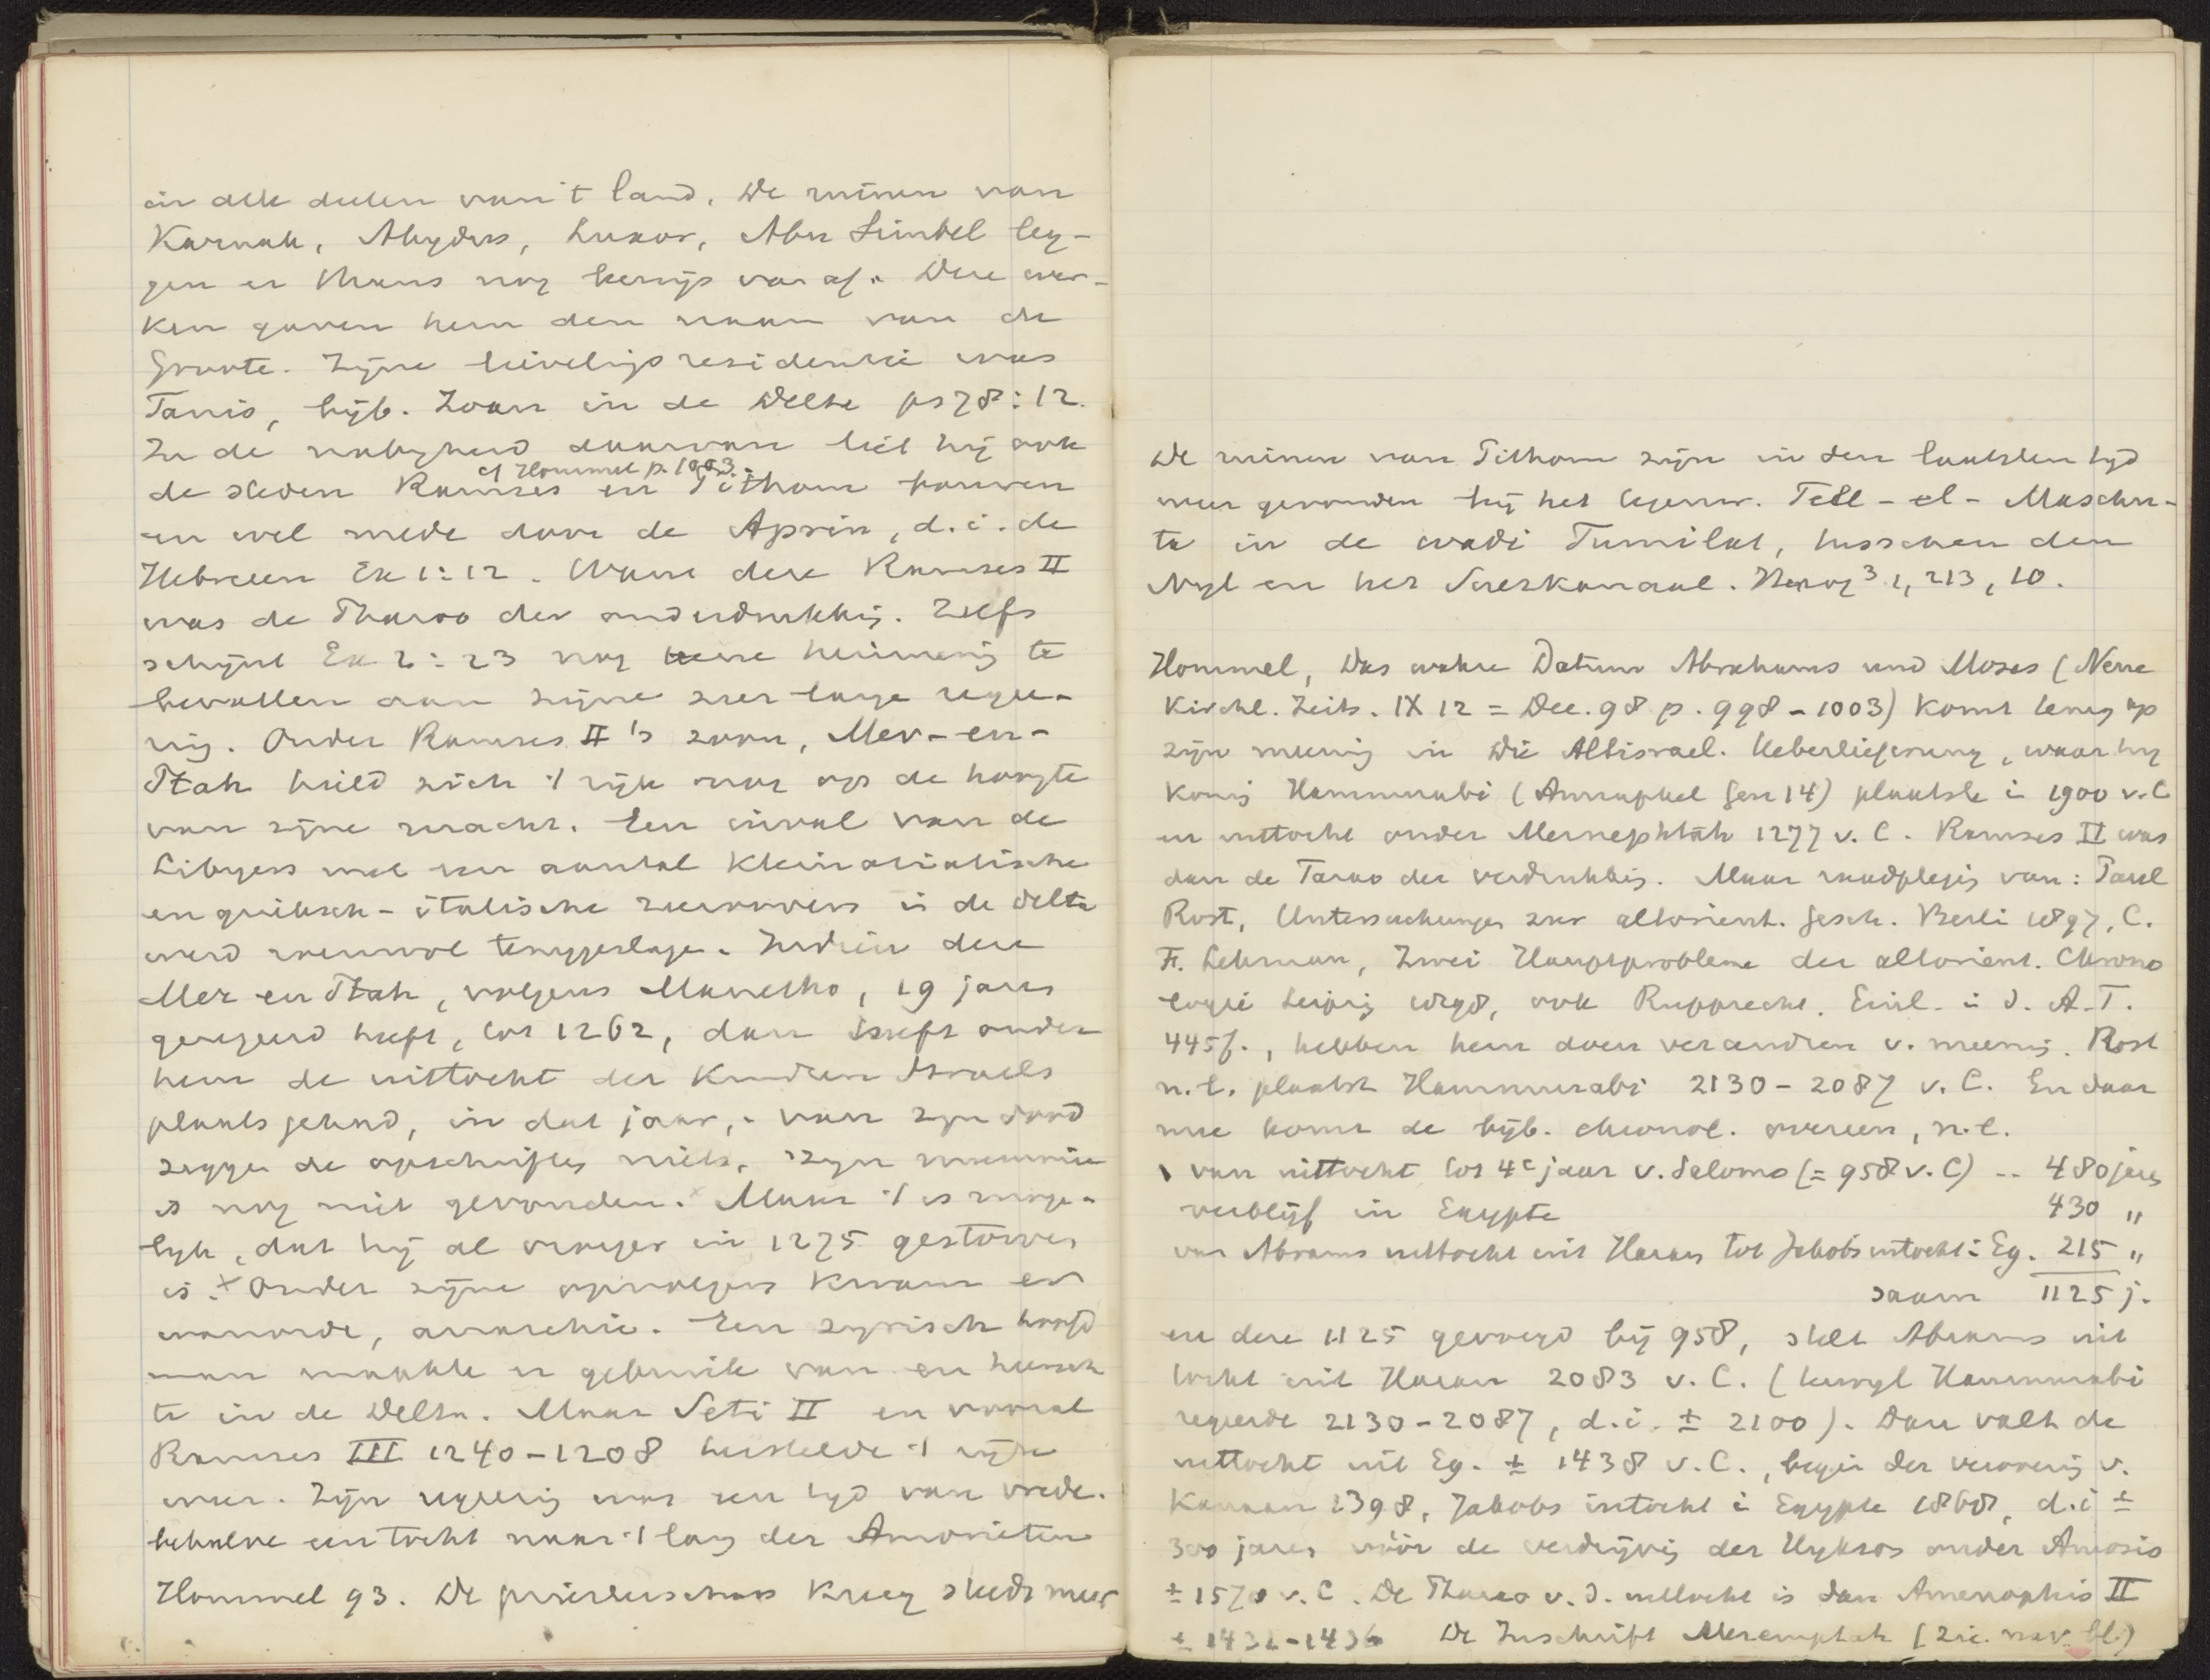 in alle deelen van 't land. De ruïnen van
Karnak, Abydus, Luxor, Abu Simbel leg-
gen er thans nog bewijs van af. Deze wer-
ken gaven hem den naam van de
Groote. Zijne lievelingsresidentie was
Tanis, bijb. Zoan in de Delta ps 78:12.
In de nabijheid daarvan liet hij ook
cf Hommel p. 1003.
de steden Ramses en Pithom bouwen
en wel mede door de Aprin, d.i. de
Hebreen Ex 1:12. Want deze Ramses II
was de Pharao der onderdrukking. Zelfs
schijnt Ex 2:23 nog eene herinnering te
bevatten aan zijne zeer lange regee-
ring. Onder Ramses II's zoon, Mer-en-
Ptah hield zich 't rijk nog op de hoogte
van zijne macht. Een inval van de
Libyers met een aantal Kleinasiatische
en grieksch-italische zeeroovers in de delta
werd teruggeslagen. Indien deze
Mer en Ptah, volgens Manetho, 19 jaren
geregeerd heeft, tot 1262, dan heeft onder
hem de uittocht der kinderen Israels
plaats gehad, in dat jaar, van zijn dood
zeggen de opschriften niets, zijn mummie
is nog niet gevonden. Maar 't is moge-
lijk, dat hij al vroeger in 1275 gestorven
is. + Onder zijne opvolgers kwam er
wanorde, anarchie. Een syrisch hoofd
man maakte er gebruik van en heersch
te in de Delta. Maar Seti II en vooral
Ramses III 1240-1208 herstelde 't rijk
weer. Zijn regeering was een tijd van vrede.
behalve een tocht naar 't land der Amorieten
Hommel 93. De priesterschap kreeg steeds meer
De ruinen van Pithom zijn in den laatsten tijd
weer gevonden bij het tegenw. Tell-el-Maschu-
ta in de wadi Tumilat, tusschen den
Nijl en het Suezkanaal. Herzog³ 1, 213, 10.
Hommel, Das wahre Datum Abrahams und Moses (Neue
Kirchl. Zeits. IX 12 = Dec. 98 p. 998-1003) komt terug op
zijn meening in Die Altisrael. Ueberlieferung, waar hij
koning Hammurabi (Amraphel Gen 14) plaatste in 1900 v.C
en uittocht onder Mernephtah 1277 v. C. Ramses II was
dan de Farao der verdrukking. Maar raadpleging van: Paul
Rost, Untersuchungen zur altorient. Gesch. Berlin 1897, C.
F. Lehman, Zwei Hauptprobleme der altorient. Chrono
logie Leipzig 1898, ook Rupprecht. Einl. in d. A.T.
445f., hebben hem doen veranderen v. meening. Rost
n.l. plaatst Hammurabi 2130-2087 v. C. En daar
mee komt de bijb. chronol. overeen, n.l.
van uittocht tot 4e jaar v. Salomo (= 958 v. C) -- 480 jaren
verblijf in Egypte 430 "
van Abrams uittocht uit Haran tot Jakobs intocht in Eg. 215 "
saam 1125 j.
en deze 1125 gevoegd bij 958, stelt Abrams uit
tocht uit Haran 2083 v. C. (terwijl Hammurabi
regeerde 2130-2087, d.i. ± 2100). Dan valt de
uittocht uit Eg. ± 1438 v. C., begin der verovering v.
Kanaan 1398, Jakobs intocht in Egypte 1868, d.i ±
300 jaren vóór de verdrijving der Hyksos onder Amosis
± 1570 v. C. De Pharao v. d. uittocht is dan Amenophis II
± 1436 De Inschrift Merenptah (zie